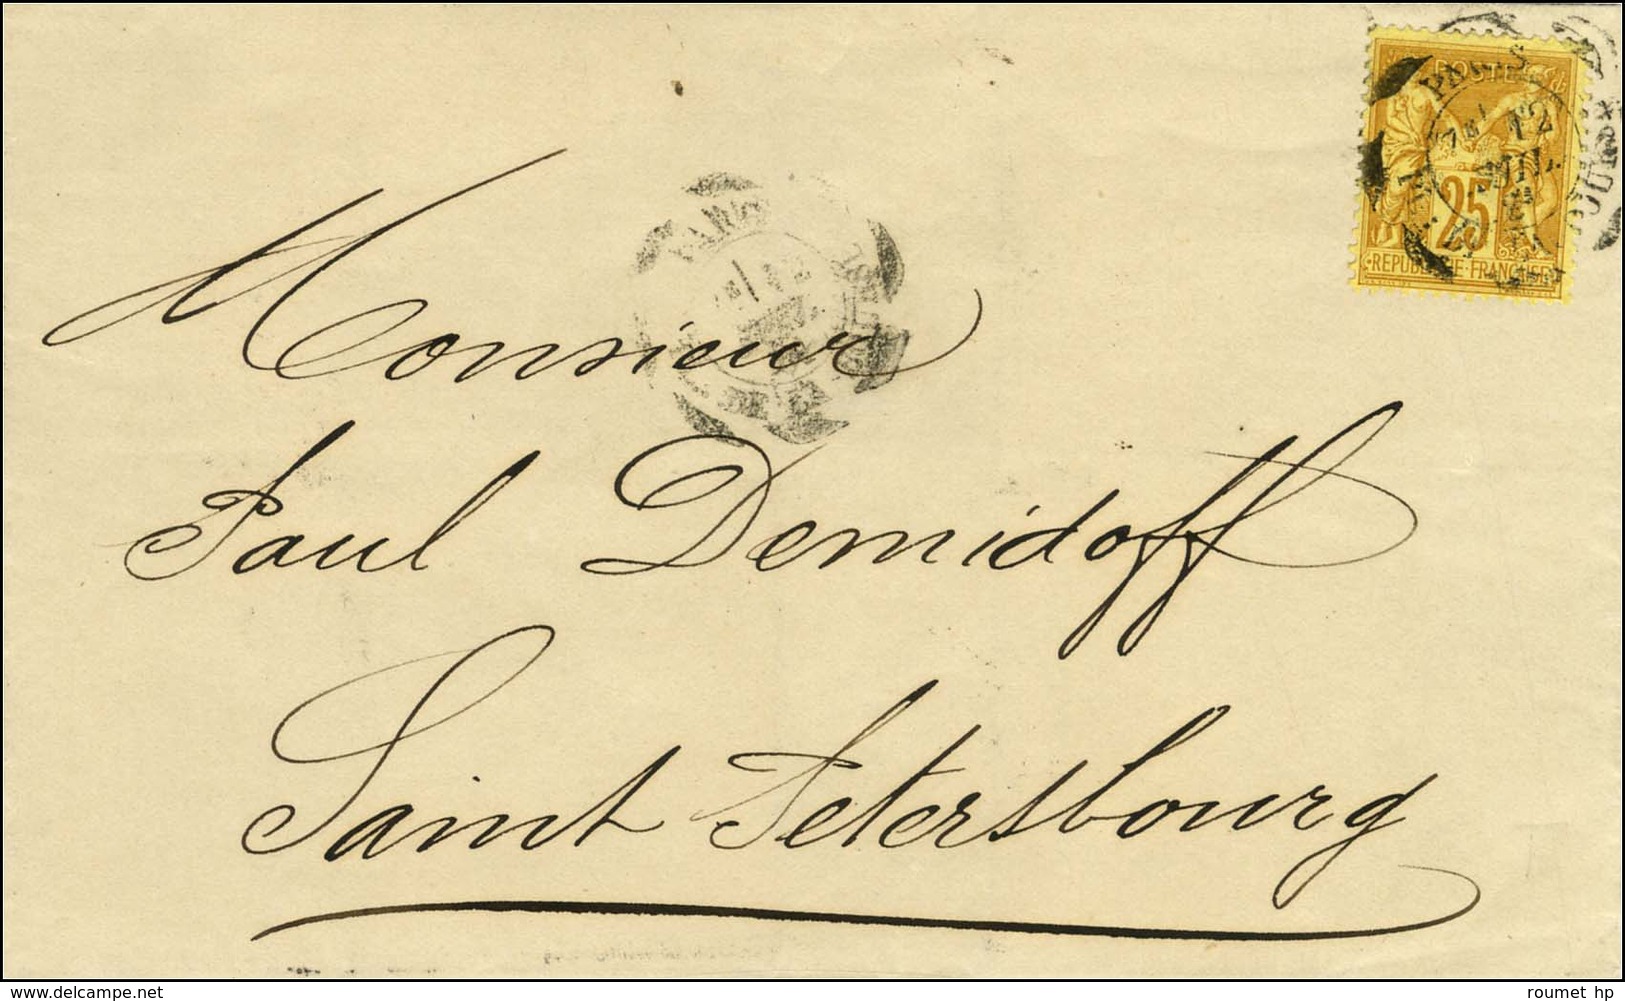 POSTES
PARIS
12
JUIL
25
REPUBLIQUE FRANCAISE
PARIS
Monsieur
Paul Demidoff
Saint Petersbourg
www.delcampe.net
roumet hp